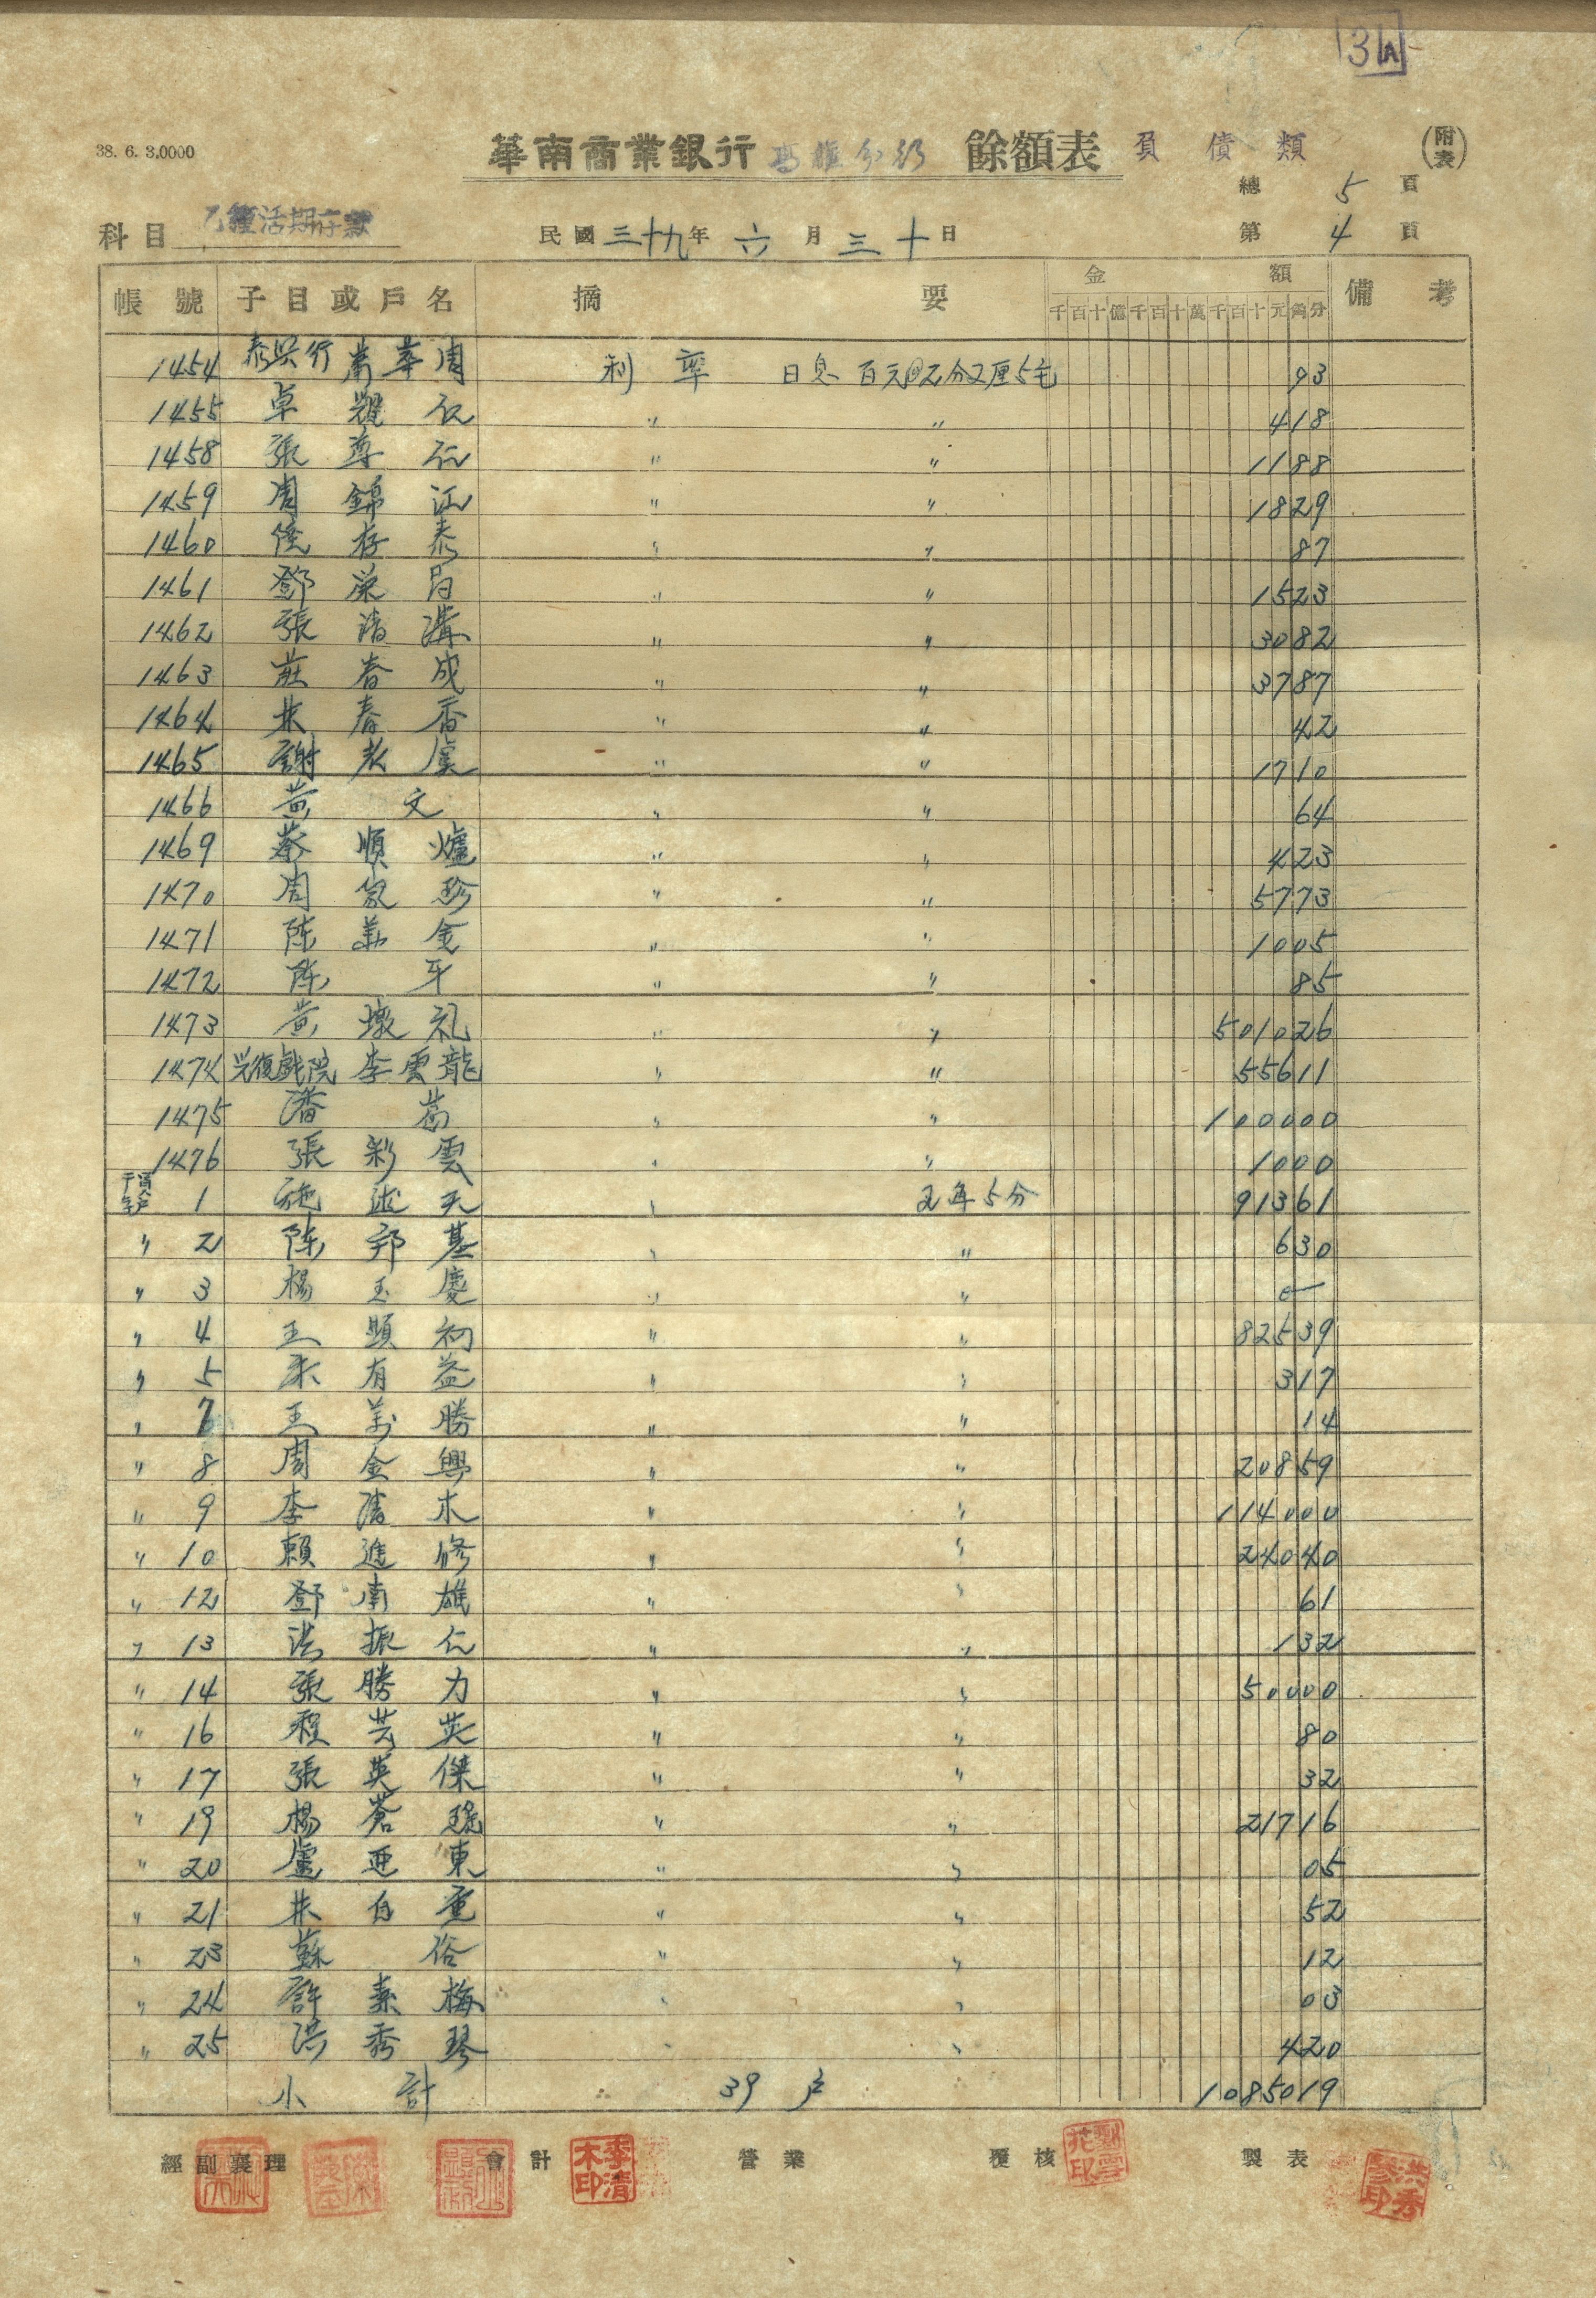 3 A
38. 6. 3,0000
華南商業銀行 高雄分行 餘額表 負債類 (附表)
總 5 頁
科目 乙種活期存款 民國三十九年 六月三十日 第 4 頁
帳號 子目或戶名 摘要 金額 備考
千百十億千百十萬千百十元角分
1454 泰興行 周 利率 日息 百元@2分2厘5毛 93
1455 卓 〃 〃 418
1458 張尊仁 〃 〃 1188
1459 周錦江 〃 〃 1829
1460 存泰 〃 〃 87
1461 鄧榮昌 〃 〃 1523
1462 張清溝 〃 〃 3082
1463 莊春成 〃 〃 3787
1464 林春香 〃 〃 42
1465 謝 〃 〃 1710
1466 黃文 〃 〃 64
1469 蔡順爐 〃 〃 423
1470 周家珍 〃 〃 5773
1471 陈金 〃 〃 1005
1472 陈牙 〃 〃 85
1473 黃墩礼 〃 〃 501026
1474 光復戲院 李雲龍 〃 〃 55611
1475 潘 〃 〃 100000
1476 張彩雲 〃 〃 1000
1 施 天 〃 2分5 91361
〃 2 陈邦基 〃 〃 630
〃 3 楊玉慶 〃 〃 0
〃 4 王顯初 〃 〃 82539
〃 5 有益 〃 〃 317
〃 7 王萬勝 〃 〃 14
〃 8 周金興 〃 〃 20859
〃 9 李清木 〃 〃 114000
〃 10 賴進修 〃 〃 24040
〃 12 鄧南雄 〃 〃 61
〃 13 洪振仁 〃 〃 132
〃 14 張勝力 〃 〃 50000
〃 16 程芸英 〃 〃 80
〃 17 張英傑 〃 〃 32
〃 19 楊蒼 〃 〃 21716
〃 20 盧亜東 〃 〃 05
〃 21 林自重 〃 〃 52
〃 23 蘇俗 〃 〃 12
〃 24 許素梅 〃 〃 03
〃 25 洪秀琴 〃 〃 420
小計 39戶 1085019
經副襄理 會計 李清木印 營業 覆核 製表